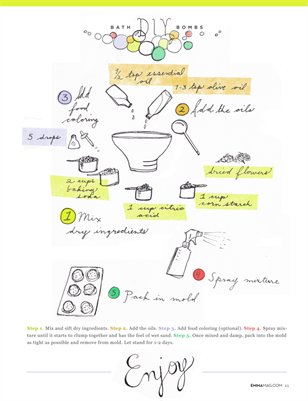 DIY
BATH BOMBS
1/2 tsp essential
oil
1-3 tsp olive oil
3 Add
food
coloring
2 Add the oils
5 drops
dried flowers
2 cups
baking
soda
1 cup citric
acid
1 cup
corn starch
1 Mix
dry ingredients
4 Spray mixture
5 Pack in mold
Step 1. Mix and sift dry ingredients. Step 2. Add the oils. Step 3. Add food coloring (optional). Step 4. Spray mix-
ture until it starts to clump together and has the feel of wet sand. Step 5. Once mixed and damp, pack into the mold
as tight as possible and remove from mold. Let stand for 1-2 days.
Enjoy
EMMAMAG.COM